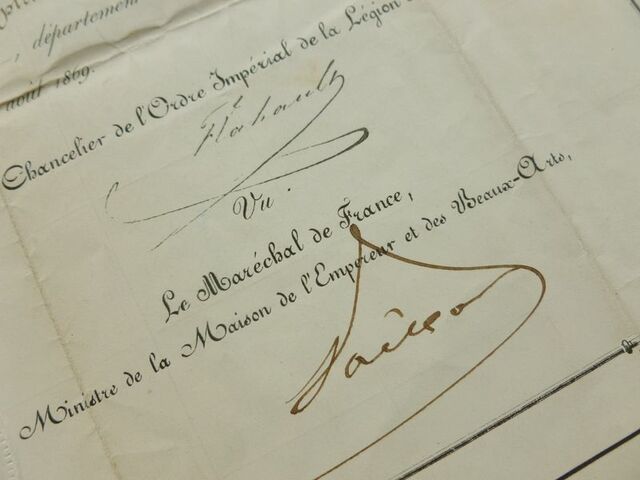 , département
août 1869.
Chancelier de l'Ordre Impérial de la Légion
Flahault
Vu.
Le Maréchal de France,
Ministre de la Maison de l'Empereur et des Beaux-Arts,
Vaillant